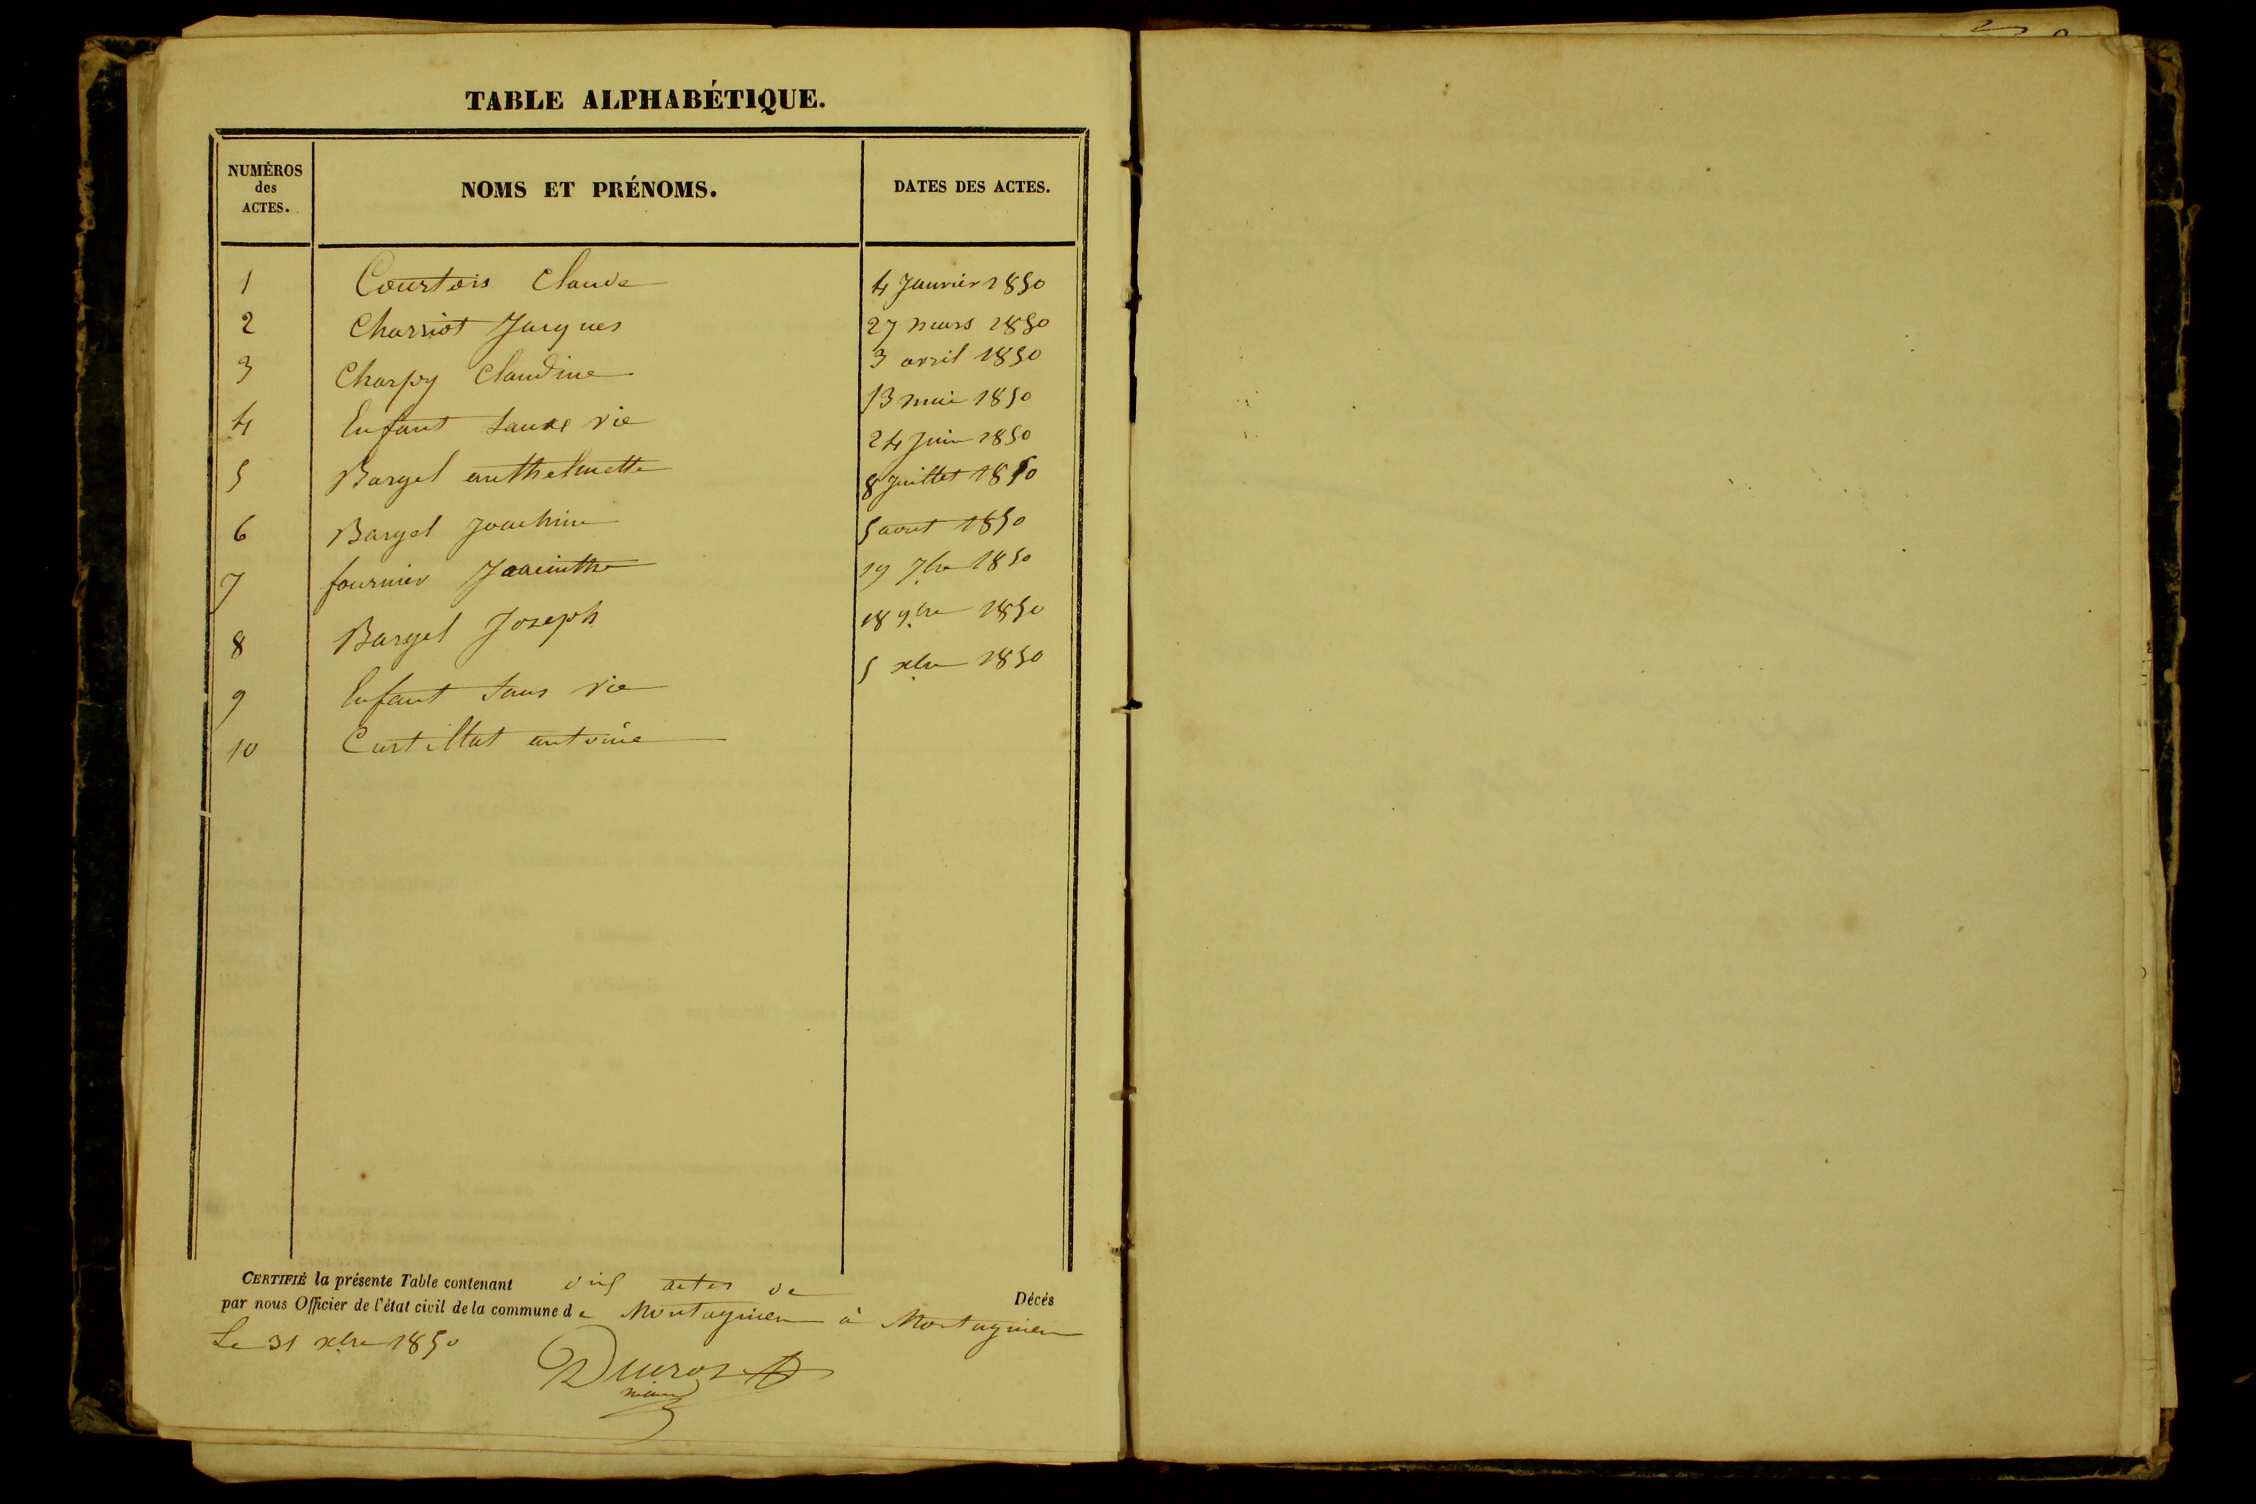 TABLE ALPHABÉTIQUE.
NUMÉROS des ACTES. NOMS ET PRÉNOMS. DATES DES ACTES.
1 Courtois Claude 4 Janvier 1850
2 Charriot Jacques 27 mars 1850
3 Charpy Claudine 3 avril 1850
4 Enfant sans vie 13 mai 1850
5 Bargel anthelmette 24 Juin 1850
6 Bargel Joachim 8 Juillet 1850
7 fournier Jacinthe 5 aout 1850
8 Bargel Joseph 19 7bre 1850
9 Enfant sans vie 18 9bre 1850
10 Curtillat antoine 5 xbre 1850
CERTIFIÉ la présente Table contenant dix actes de Décés
par nous Officier de l'état civil de la commune de Montagnieu à Montagnieu
Le 31 xbre 1850
maire